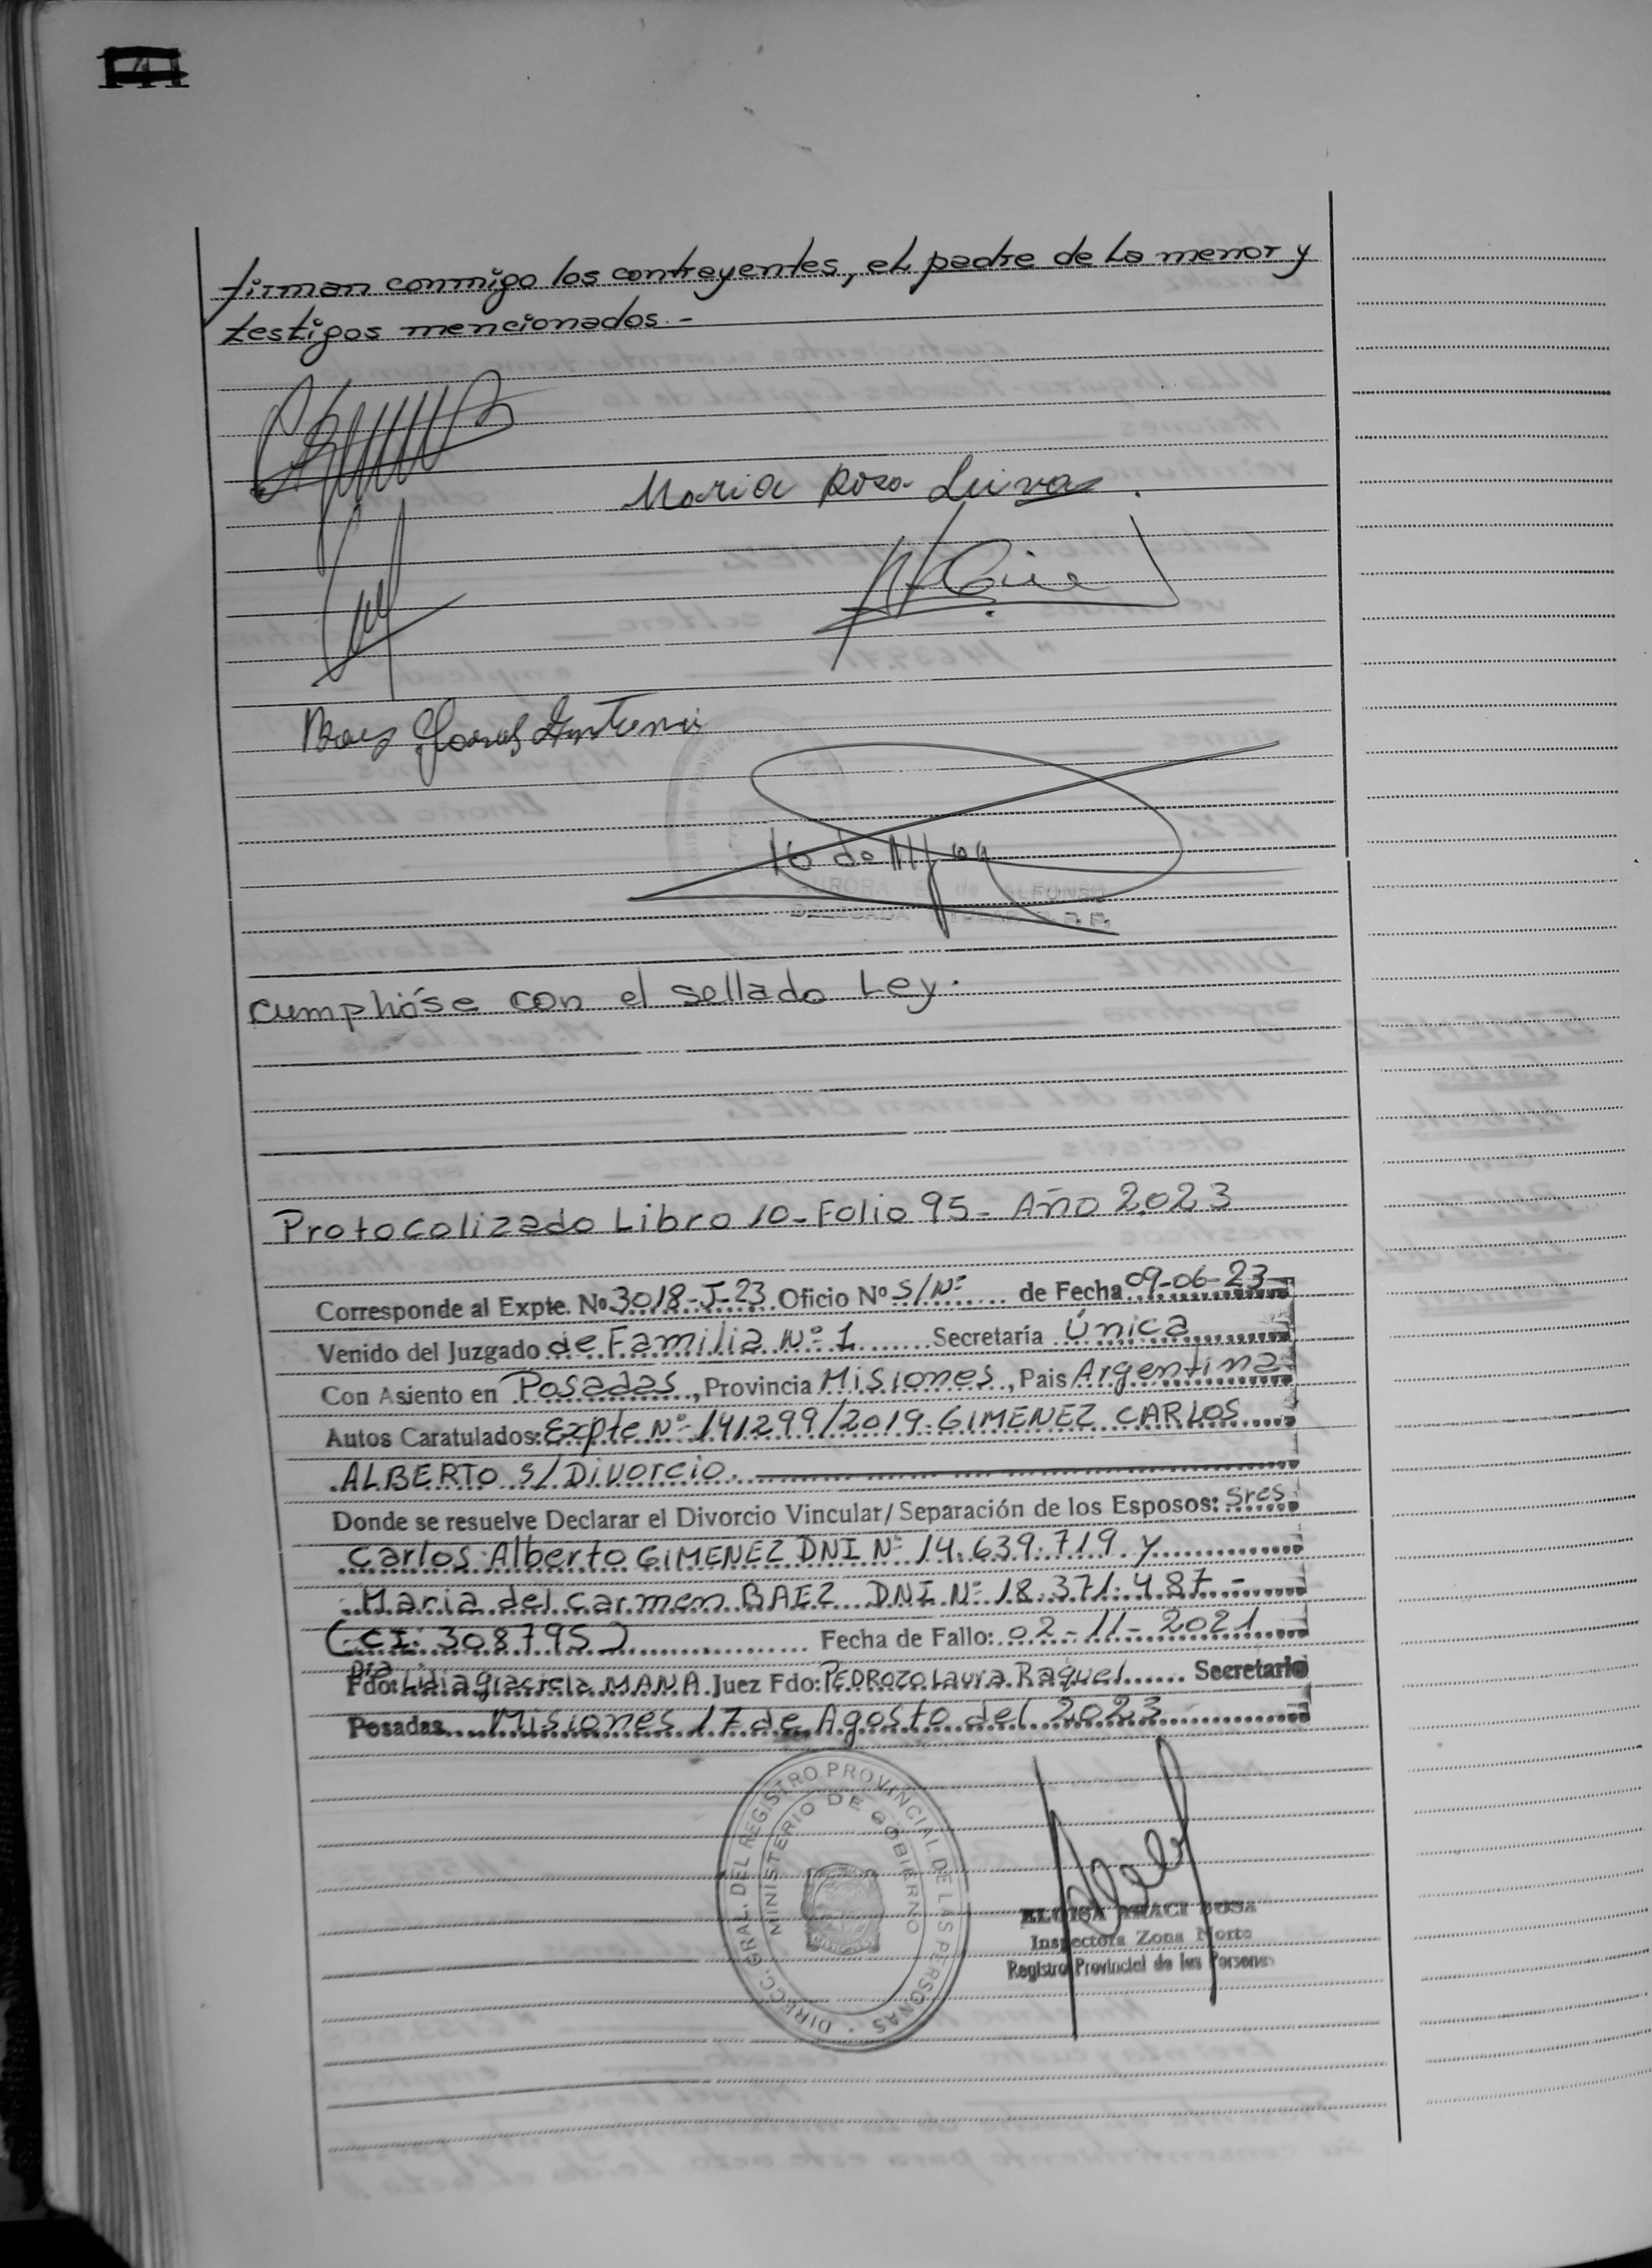 firman conmigo los contrayentes, el padre de la menor y
testigos mencionados.-
Maria Rosa Leiva
Cumplióse con el sellado Ley.
Protocolizado Libro 10-Folio 95- Año 2.023
Corresponde al Expte. Nº 3018-J-23 Oficio Nº S/Nº de Fecha 09-06-23
Venido del Juzgado de Familia Nº 1 Secretaría Única
Con Asiento en Posadas, Provincia Misiones, Pais Argentina
Autos Caratulados: Expte Nº 141299/2019-GIMENEZ CARLOS
ALBERTO S/Divorcio.
Donde se resuelve Declarar el Divorcio Vincular/Separación de los Esposos: Sres
Carlos Alberto GIMENEZ DNI Nº 14.639.719 y
Maria del Carmen BAEZ DNI Nº 18.371.487-
(CI: 308795) Fecha de Fallo: 02-11-2021
Dra
Fdo: Lidia Graciela MANA Juez Fdo: PEDROZO Laura Raquel Secretario
Posadas Misiones 17 de Agosto del 2023
DIRECC. GRAL. DEL REGISTRO PROVINCIAL DE LAS PERSONAS
MINISTERIO DE GOBIERNO
Inspectora Zona Norte
Registro Provincial de las Personas